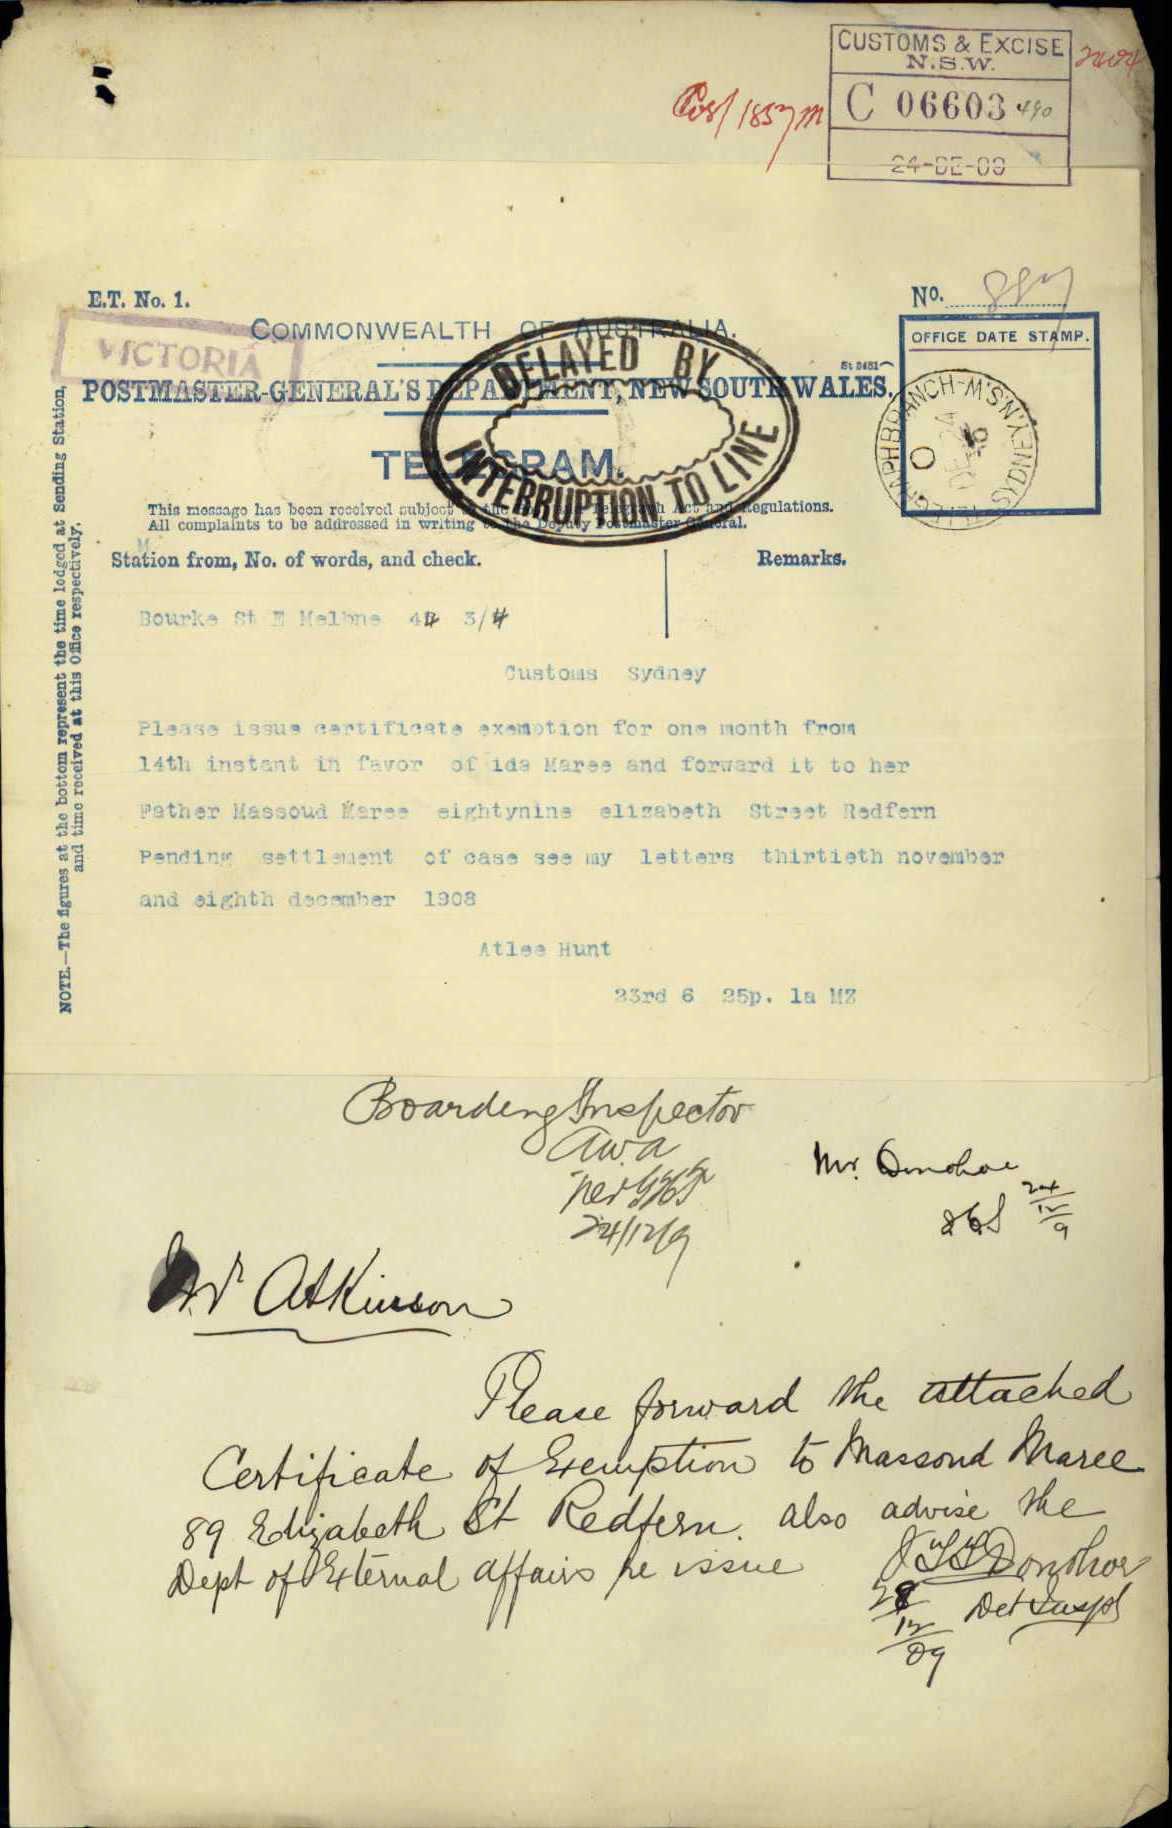 CUSTOMS & EXCISE
N.S.W.
C 06603
24-DE-09
E.T. No. 1.
No. 887
VICTORIA
COMMONWEALTH OF AUSTRALIA.
OFFICE DATE STAMP.
St 2451
POSTMASTER-GENERAL'S DEPARTMENT, NEW SOUTH WALES.
DELAYED BY
INTERRUPTION TO LINE
TELEGRAPH BRANCH-N.S.W. SYDNEY
TELEGRAM.
This message has been received subject to the Post and Telegraph Act and Regulations.
All complaints to be addressed in writing to the Deputy Postmaster General.
Station from, No. of words, and check.
Remarks.
NOTE.—The figures at the bottom represent the time lodged at Sending Station,
and time received at this Office respectively.
Bourke St E Melbne 3/4
Customs Sydney
Please issue certificate exemption for one month from
14th instant in favor of ida Maree and forward it to her
Father Massoud Maree eightynine elizabeth Street Redfern
Pending settlement of case see my letters thirtieth november
and eighth december 1908
Atlee Hunt
23rd 6 25p. 1a MZ
Boarding Inspector
24/12/9
Mr. Donohoe
24/12/9
Mr Atkinson
Please forward the attached
Certificate of Exemption to Massoud Maree
89 Elizabeth St Redfern. also advise the
Dept of External affairs re issue
Donohoe
Det Inspr
28/12/09